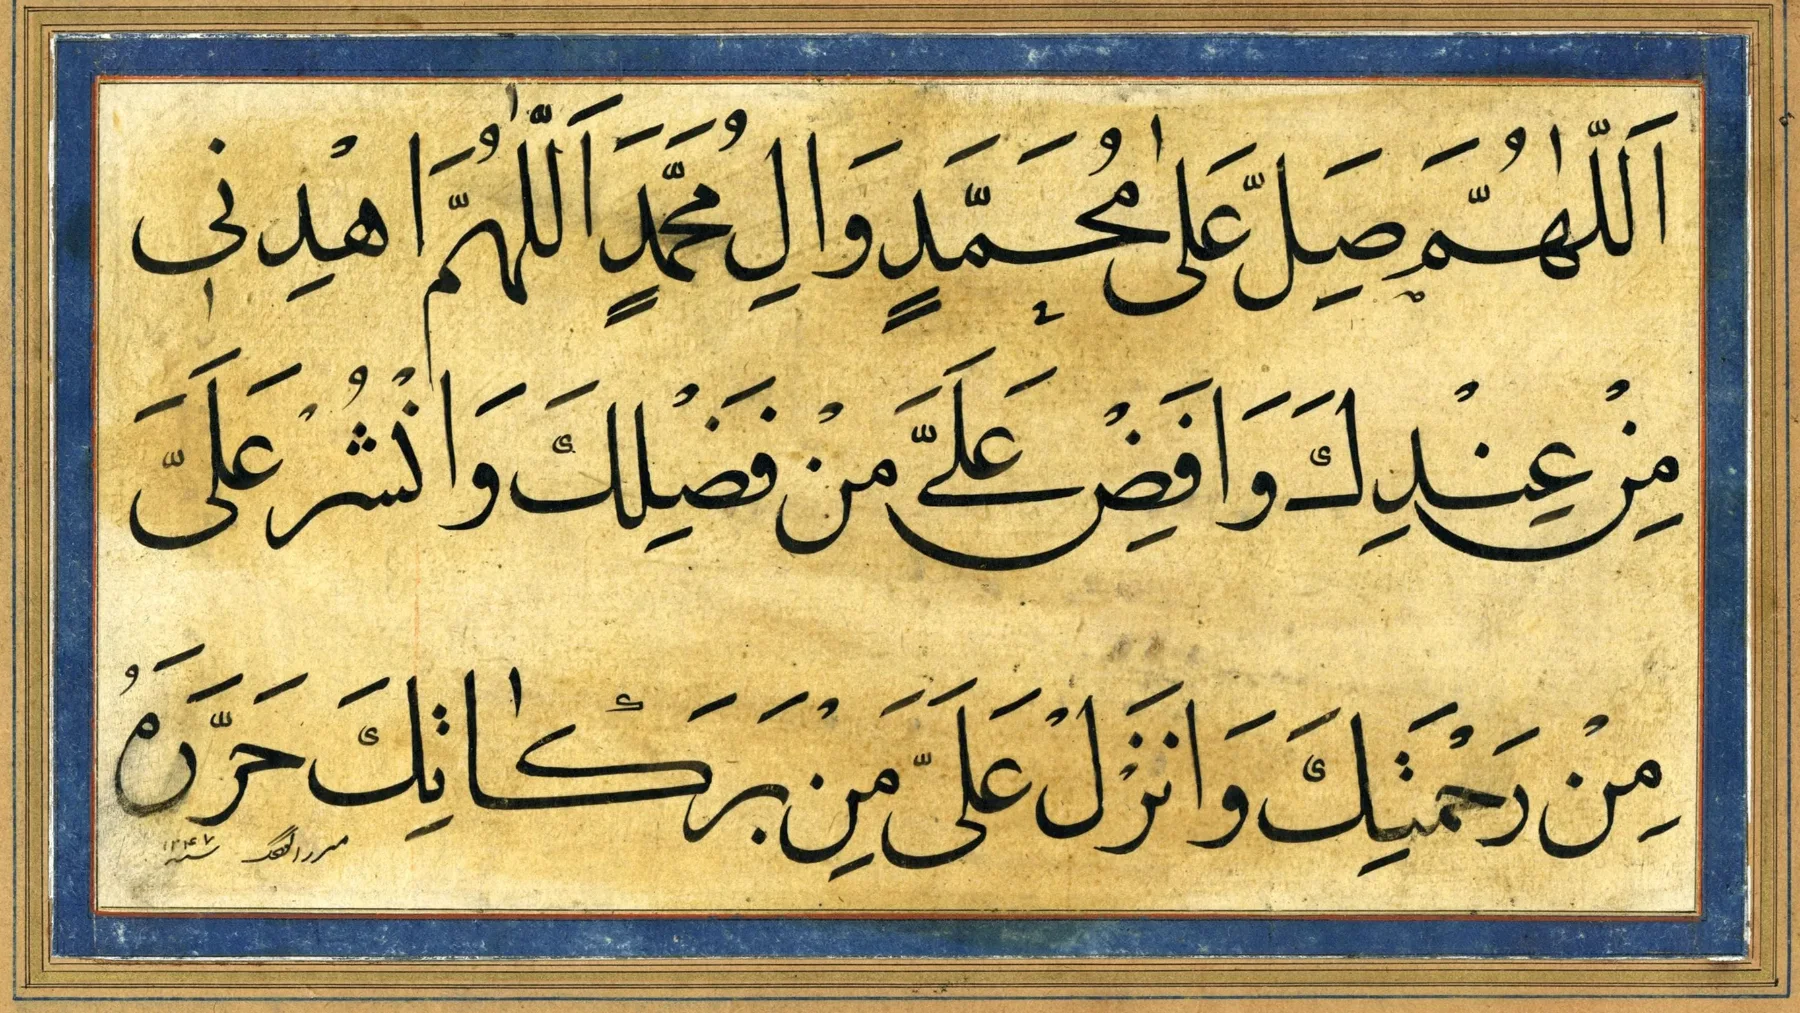 اَللّٰهُمَّ صَلِّ عَلىٰ مُحَمَّدٍ وَالِ مُحَمَّدٍ اَللّٰهُمَّ اهْدِنِی
مِنْ عِنْدِكَ وَاَفِضْ عَلَیَّ مِنْ فَضْلِكَ وَانْشُرْ عَلَیَّ
مِنْ رَحْمَتِكَ وَاَنْزِلْ عَلَیَّ مِنْ بَرَكَاتِكَ حَرَّرَهُ
سنه ١٢٤٧